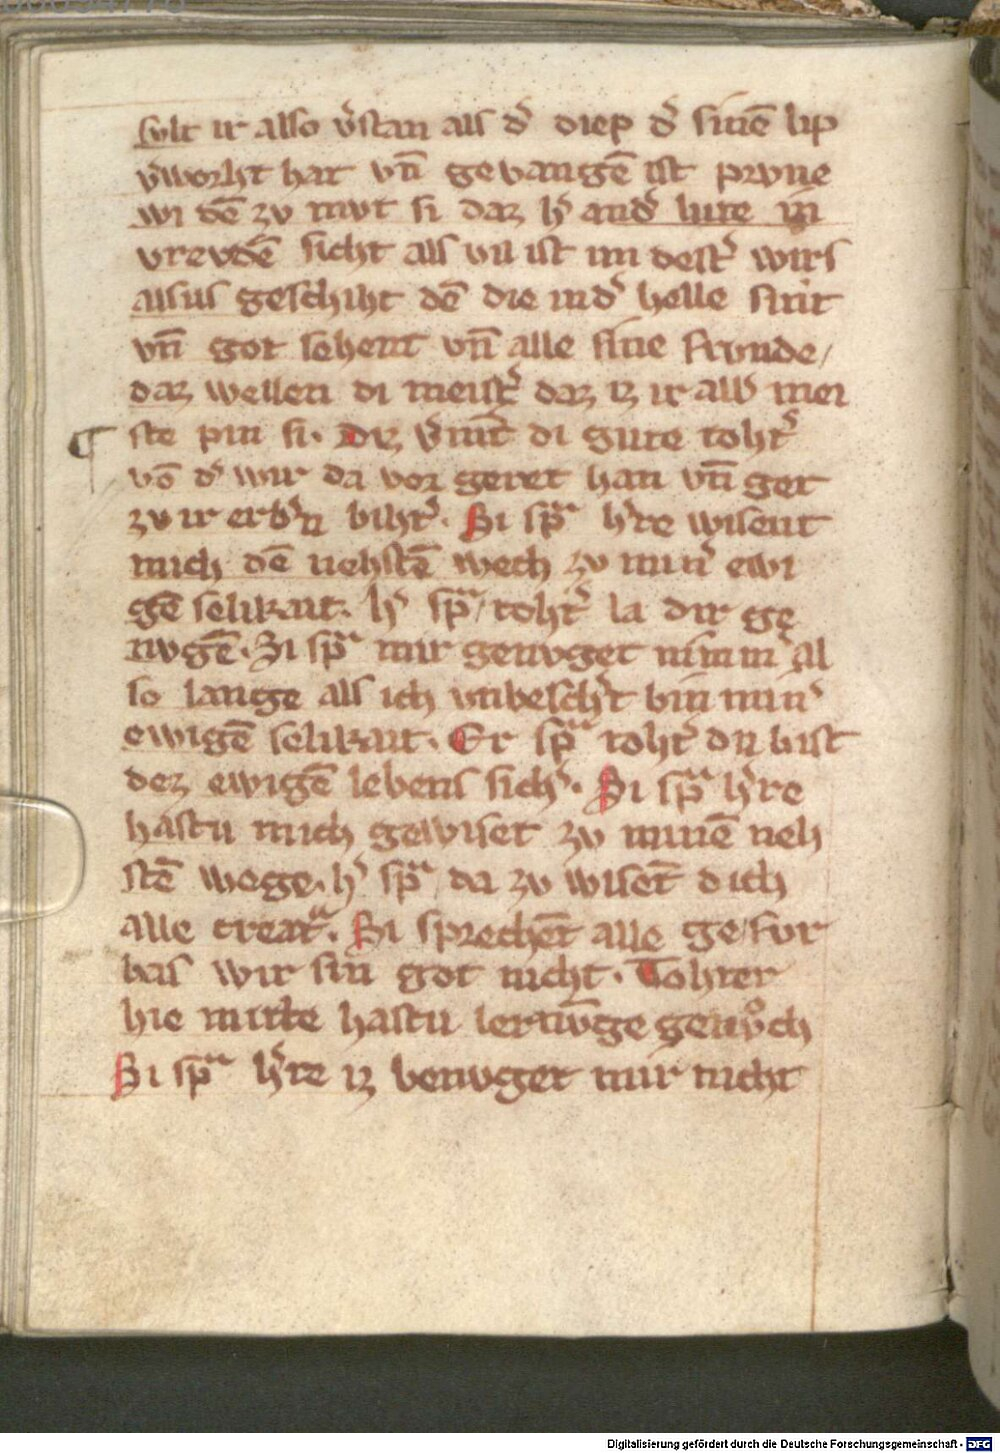 sylt ir also v̾stan als d̾ diep d̾ sinē lip
v̾worht hat vn̄ gevangē ist prvne
wi dē zv mvt si daz h̾ and̾ lute in
vrevdē sicht als vil ist im dest̾ wirs
alsus geschiht dē die in d̾ helle sint
vn̄ got sehent vn̄ alle sine frvnde /
daz wellen di meist̾ daz iz ir all̾ mei
ste pin si. Diz v̾nimt di gute toht̾
vō d̾ wir da vor geret han vn̄ get
zv ir erb̾n biht̾. Si sp̃ͣ h̾re wisent
mich dē nehstē wech zv min̾ ewi
gē selikait. h̾ sp̃ͣ / toht̾ la dir ge
nvgē. Si sp̃ͣ mir genvget nimm̾ al
so lange als ich vnbesch̾t bin min̾
ewigē selikait. Er sp̃ͣ toht̾ du bist
dez ewigē lebens sich̾. Si sp̃ͣ h̾re
hastu mich gewiset zv minē neh
stē wege. h̾ sp̃ͣ / da zv wisēt dich
alle creatͣ. Si sprechēt alle ge fvr
bas wir sin got nicht. Tohter
hie mitte hastu lernvnge genvͦch
Si sp̃ͣ h̾re iz benvget mir nicht
Digitalisierung gefördert durch die Deutsche Forschungsgemeinschaft - DFG